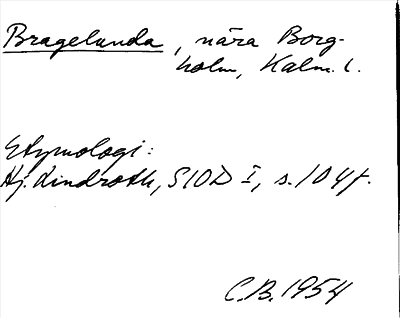 Bragelunda, nära Borg-
holm, Kalm. l.
Etymologi:
Hj. Lindroth, SIOD I, s. 104 f.
C.B. 1954